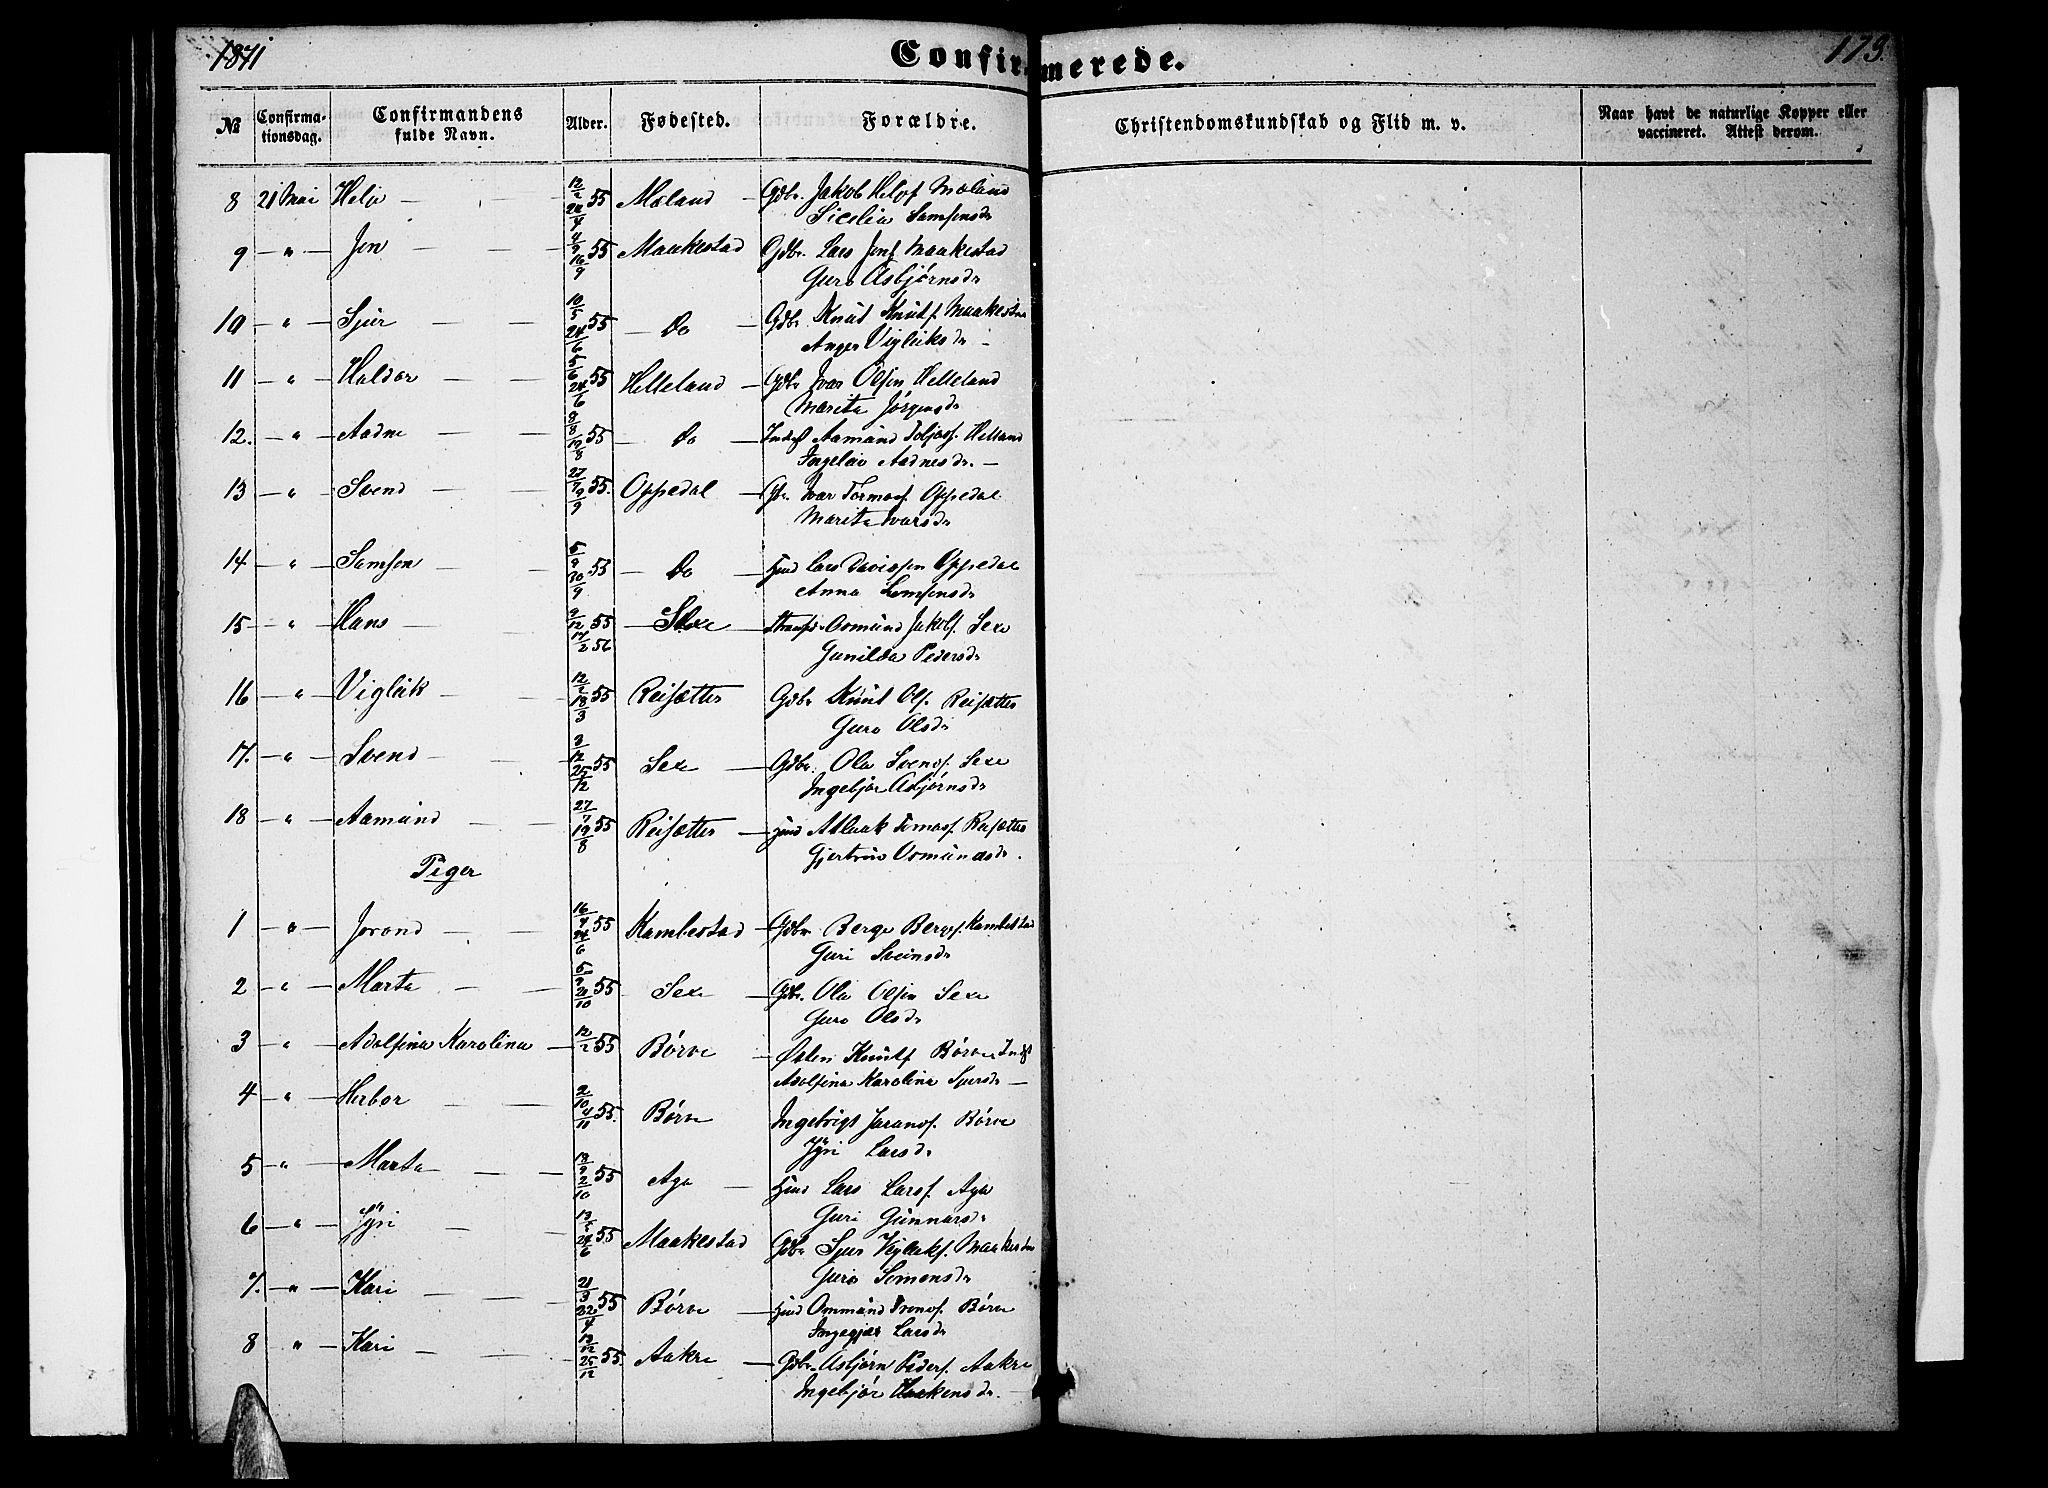 1871
Confirmerede.
173.
№
Confirmationsdag.
Confirmandens fulde Navn.
Alder.
Fødested.
Forældre.
Christendomskundskab og Flid m. v.
Naar havt de naturlige Kopper eller vaccineret. Attest derom.
8 21 Mai Helje — — 12/2 55 Mæland Gdbr. Jakob Helgs. Mæland
Sicelia Samsonsdr
9 — " — Jon — — 4/9 16/9 55 Maakestad Gdbr. Lars Jons. Maakestad
Guro Asbjørnsdr
10 — " — Sjur — — 10/5 24/6 55 — Do — Gdbr Knut Knuts. Maakestad
Anger Vigleiksdr —
11 — " — Haldor — — 5/6 24/6 55 Helleland — Gdbr Ivar Olsen Helleland
Marita Jørgensdr
12. — " — Aadne — — 8/8 19/8 55 — Do — Inds Aamund Helland
Ingeleiv Aadnesdr. —
13 — " — Svend — — 27/7 9/9 55. Oppedal — Gbr. Ivar Tormos. Oppedal
Marita Ivarsdr
14 — " — Samson — — 5/9 30/9 55 — Do — Hmd Lars Davidsen Oppedal
Anna Samsonsdr
15 — " — Hans — — 9/12 55 17/2 56 — Sexe — Osmund Jakobs. Sexe
Gunilda Pedersdr
16 — " — Vigleik — — 12/2 18/3 55 Reisætter Gdbr Knut Ols. Reisætter
Guro Olsdr
17. — " — Svend — — 3/12 25/12 55 Sexe — Gdbr. Ola Svends. Sexe
Ingebjør Asbjørnsdr
18 — " — Aamund — — 27/7 19/8 55 Reisætter — Hmd Aslaak Tomas. Reisætter
Gjertrud Osmundsdr.
Piger
1 — " — Jorond — — 16/4 24/6 55 Kambestad — Gdbr Berge Bergs. Kambestad
Guri Sveinsdr
2 — " — Marta — — 5/9 21/10 55 Sexe — Gdbr. Ola Olsen Sexe
Guro Olsdr
3 — " — Adolfina Karolina — 12/2 55 Børve — Østen Knuts. Børve Inds
Adolfina Karolina Sjursdr —
4 — " — Herbor — — 2/10 4/11 55. Børve Ingebrigt Jarands. Børve
Jyri Larsdr
5 — " — Marta — — 18/9 2/10 55 Aga — Hmd Lars Larss. Aga
Guri Gunnarsdr
6 — " — Jyri — — 13/5 24/6 55 Maakestad Gdbr Sjur Vigleiks. Maakestad
Guro Simonsdr
7. — " — Kari — — 21/3 22/4 55 Børve — Hmd Ommund Tronds. Børve
Ingegjær Larsdr
8 — " — Kari — — 13/12 25/12 55. Aakre — Gdbr. Asbjørn Peders. Aakre
Ingebjør Haakensdr. —